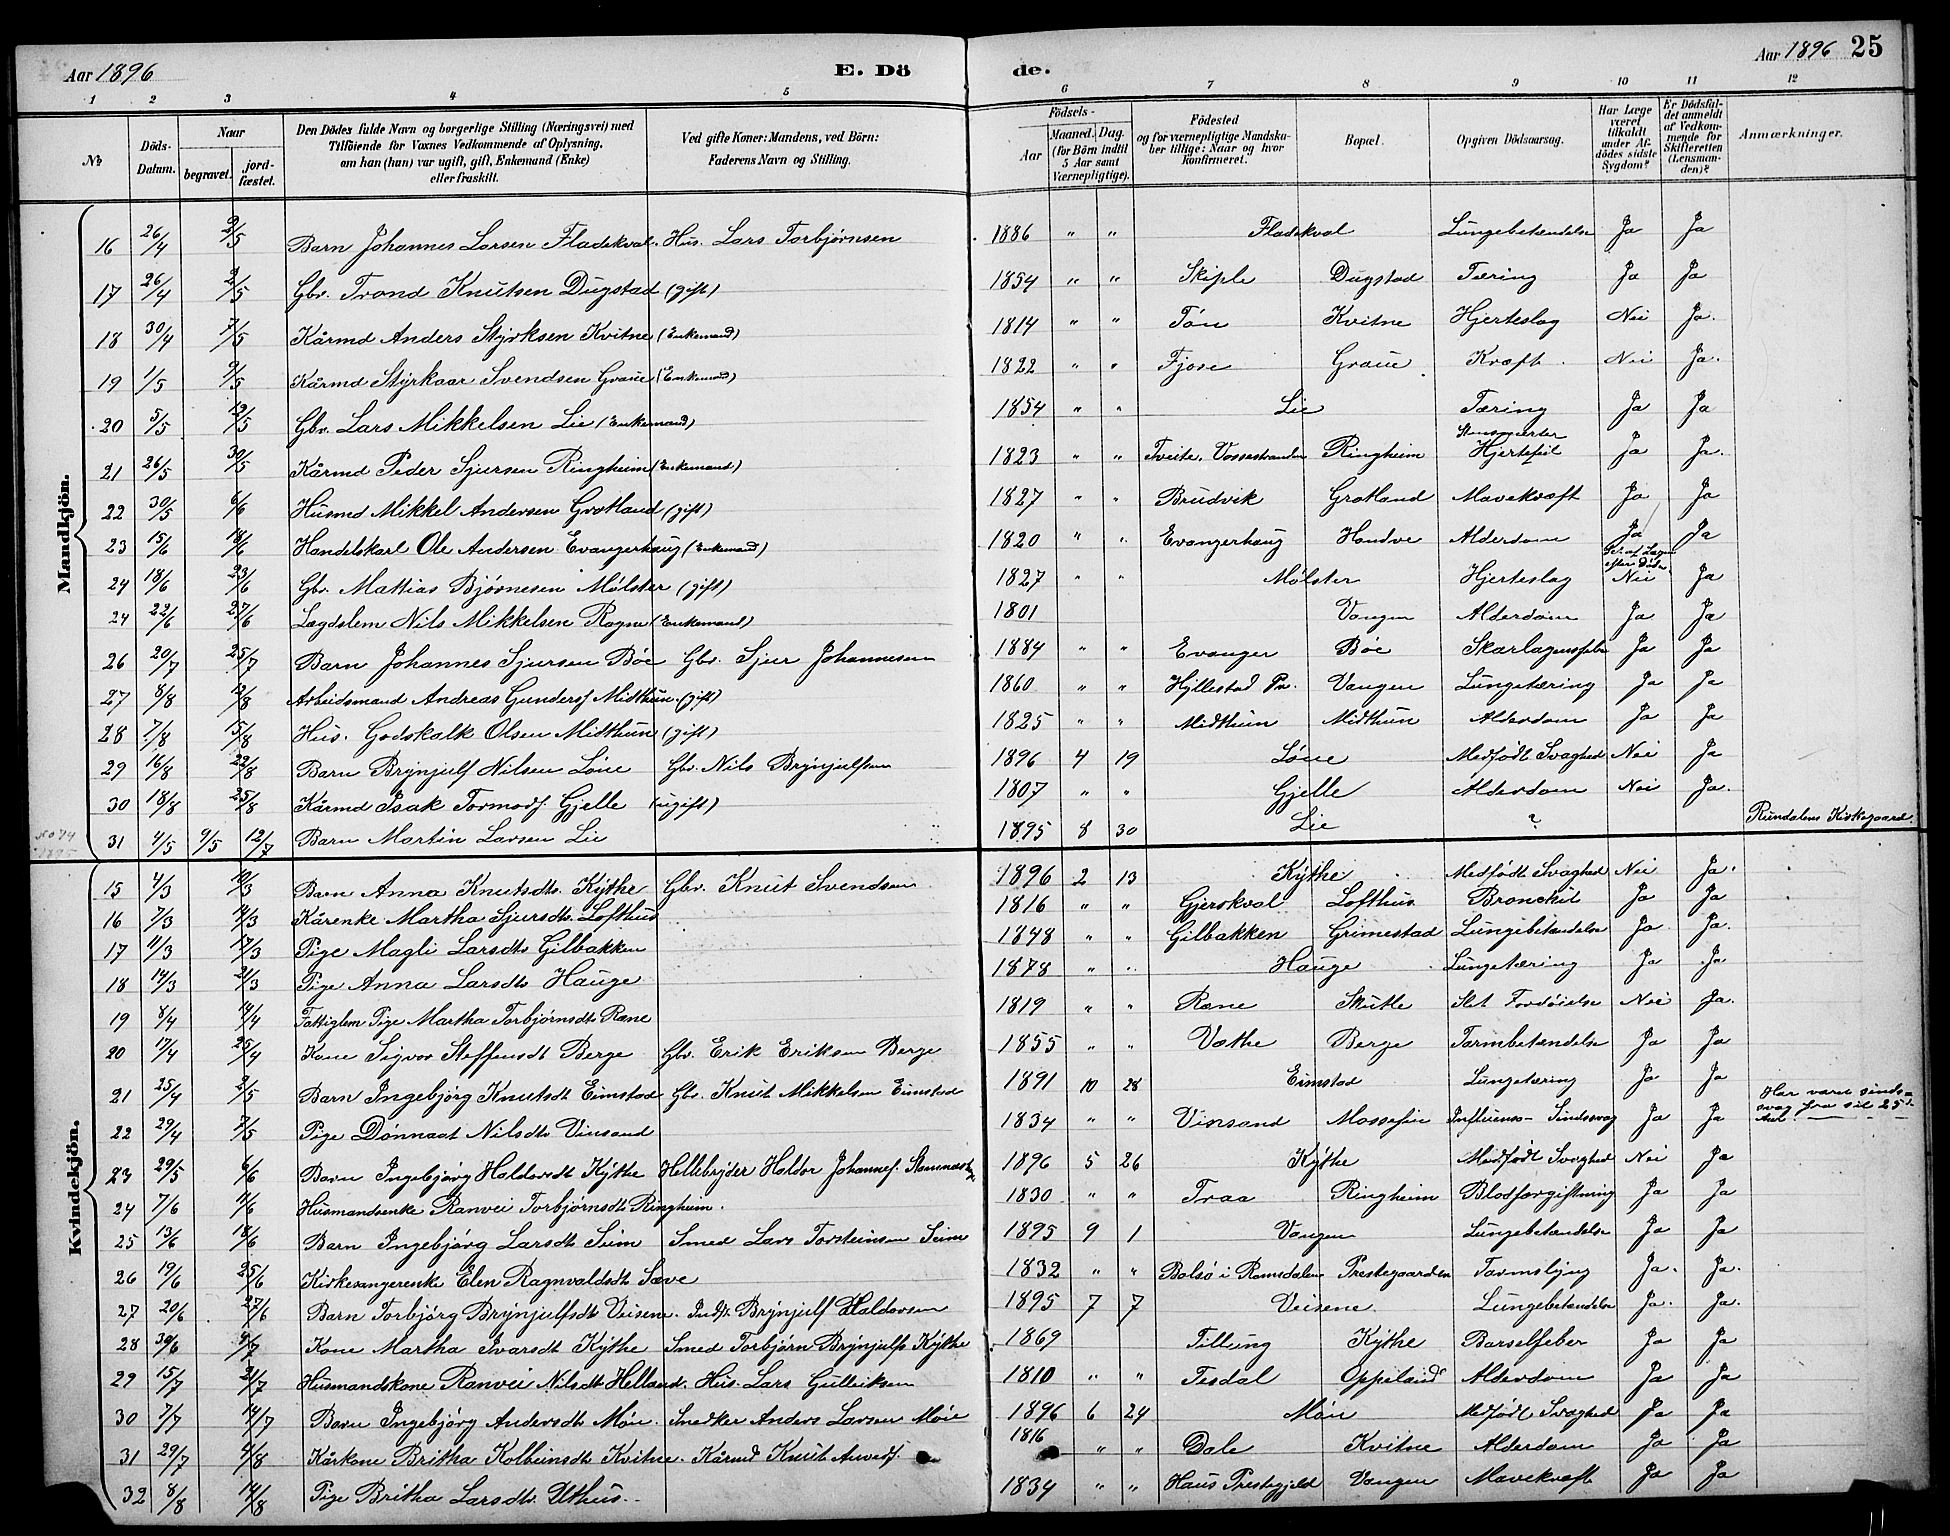 Aar 1896 E. Dö de. Aar 1896 25
1 2 3 4 5 6 7 8 9 10 11 12
No Döds-Datum. Naar begravet. jordfæstet. Den Dödes fulde Navn og borgerlige Stilling (Næringsvei) med Tilföiende for Voxnes Vedkommende af Oplysning, om han (hun) var ugift, gift, Enkemand (Enke) eller fraskilt. Ved gifte Koner: Mandens, ved Börn: Faderens Navn og Stilling. Födsels- Aar Maaned. Dag. (for Börn indtil 5 Aar samt Værnepligtige). Födested og for værnepligtige Mandskaber tillige: Naar og hvor konfirmeret. Bopæl. Opgiven Dödsaarsag. Har Læge været tilkaldt under Afdödes sidste Sygdom? Er Dödsfaldet anmeldt af Vedkommende for Skifteretten (Lensmanden)? Anmærkninger.
Mandkjön.
16 26/4 2/5 Barn Johannes Larsen Fladekval. Hus. Lars Torbjørnsen 1886 " " Fladekval Lungebetændelse Ja Ja
17 26/4 2/5 Gbr. Trond Knutsen Dugstad (gift) 1854 " " Skiple Dugstad Tæring Ja Ja
18 30/4 7/5 Kårmd Anders Styrksen Kvitne (Enkemand) 1814 " " Tøn Kvitne Hjerteslag Nei Ja.
19 1/5 9/5 Kårmd Styrkaar Svendsen Graue (Enkemand) 1822 " " Fjose Graue Kræft Nei Ja.
20 5/5 12/5 Gbr. Lars Mikkelsen Lie (Enkemand) 1854 " " Lie Tæring Ja Ja
21 26/5 30/5 Kårmd Peder Sjursen Ringheim (Enkemand) 1823 " " Tveite, Vossestranden Ringheim Hjertefeil Ja Ja.
22 30/5 6/6 Husmd Mikkel Andersen Grotland (gift) 1827 " " Brudvik Grotland Mavekræft Ja Ja
23 15/6 18/6 Handelskarl Ole Andersen Evangerhaug (Enkemand) 1820 " " Evangerhaug Handve Alderdom Ja Ja
24 18/6 23/6 Gbr. Mattias Bjørnesen Mølster (gift) 1827 " " Mølster Hjerteslag Nei Ja
24 22/6 27/6 Lægdslem Nils Mikkelsen Rogne (Enkemand) 1801 Vangen Alderdom Ja Ja
26 20/7 25/7 Barn Johannes Sjursen Bøe Gbr. Sjur Johannesen 1884 " " Evanger Bøe Skarlagensfeber Ja Ja
27 8/8 12/8 Arbeidsmand Andreas Gunders. Midthun (gift) 1860 " " Hyllestad Pr. Vangen Lungetæring Ja Ja
28 7/8 15/8 Hus. Godskalk Olsen Midthun (gift) 1825 " " Midthun Midthun Alderdom Ja Ja
29 16/8 22/8 Barn Brynjulf Nilsen Løne Gbr. Nils Brynjulfsen 1896 4 19 Løne Medfødt Svaghed Nei Ja
30 18/8 25/8 Kårmd Isak Tormods. Gjelle (ugift) 1807 " " Gjelle Alderdom Nei Ja.
31 4/5 9/5 12/7 Barn Martin Larsen Lie 1895 8 30 Lie ? Rundalens Kirkegaard.
Kvindekjön.
15 4/3 10/3 Barn Anna Knutsdtr. Kythe Gbr. Knut Svendsen 1896 2 13 Kythe Medfødt Svaghed Nei Ja.
16 7/3 14/3 Kårenke Martha Sjursdtr. Lofthus 1816 " " Gjerskval Lofthus Bronchit Ja Ja
17 11/3 17/3 Pige Magli Larsdtr. Gilbakken 1848 " " Gilbakken Grimestad Lungebetændelse Ja Ja.
18 14/3 21/3 Pige Anna Larsdtr. Hauge 1878 " " Hauge Lungetæring Ja Ja
19 8/4 14/4 Fattiglem Pige Martha Torbjørnsdtr. Rene 1819 " " Rene Skutle Slet Fordøielse Nei Ja.
20 17/4 25/4 Kone Sigvor Steffensdt. Berge Gbr. Erik Eriksen Berge 1855 " " Vethe Berge Tarmbetændelse Ja Ja
21 25/4 2/5 Barn Ingebjørg Knutsdt. Eimstad Gbr. Knut Mikkelsen Eimstad 1891 10 28 Eimstad Lungetæring Ja Ja
22 29/4 7/5 Pige Dønnaat Nilsdtr. Vinsand 1834 " " Vinsand Mossefin Influensa - Sindssvag Ja Ja Har været sindssvag fra sit 25. Aar.
23 29/5 6/6 Barn Ingebjørg Haldorsdt. Kythe Hellebryder Haldor Johannes. 1896 5 26 Kythe Medfødt Svaghed Nei Ja
24 7/6 11/6 Husmandsenke Ranvei Torbjørnsdt. Ringheim. 1830 " " Traa Ringheim Blodforgiftning Ja Ja
25 13/6 18/6 Barn Ingebjørg Larsdtr. Seim Smed Lars Torsteinsen Seim 1895 9 1 Vangen Lungebetændelse Ja Ja
26 19/6 25/6 Kirkesangerenke Elen Ragnvaldsdt. Sæve 1832 " " Bolsø i Romsdalen Prestegaarden Tarmslyng Ja. Ja.
27 20/6 27/6 Barn Torbjørg Brynjulfsdt. Veisene. Inds. Brynjulf Haldorsen 1895 7 7 Veisene. Lungebetændelse Ja. Ja.
28 30/6 4/7 Kone Martha Ivarsdt. Kythe Smed Torbjørn Brynjulfs. Kythe 1869 Tillung Kythe Barselfeber Ja Ja
29 15/7 21/7 Husmandskone Ranvei Nilsdt. Helland. Hus. Lars Gulleiksen 1810 " " Tesdal Oppeland Alderdom Ja Ja
30 7/7 14/7 Barn Ingebjørg Andersdtr. Møn. Snedker Anders Larsen Møn 1896 6 24 Møn Medfødt Svaghed Ja Ja
31 29/7 4/8 Kårkone Britha Kolbeinsdt. Kvitne. Kårmd Knut 1816 " " Dale Kvitne Alderdom Ja Ja
32 8/8 14/8 Pige Britha Larsdtr. Uthus. 1834 " " Haus Prestegjeld Vangen Mavekræft Ja Ja